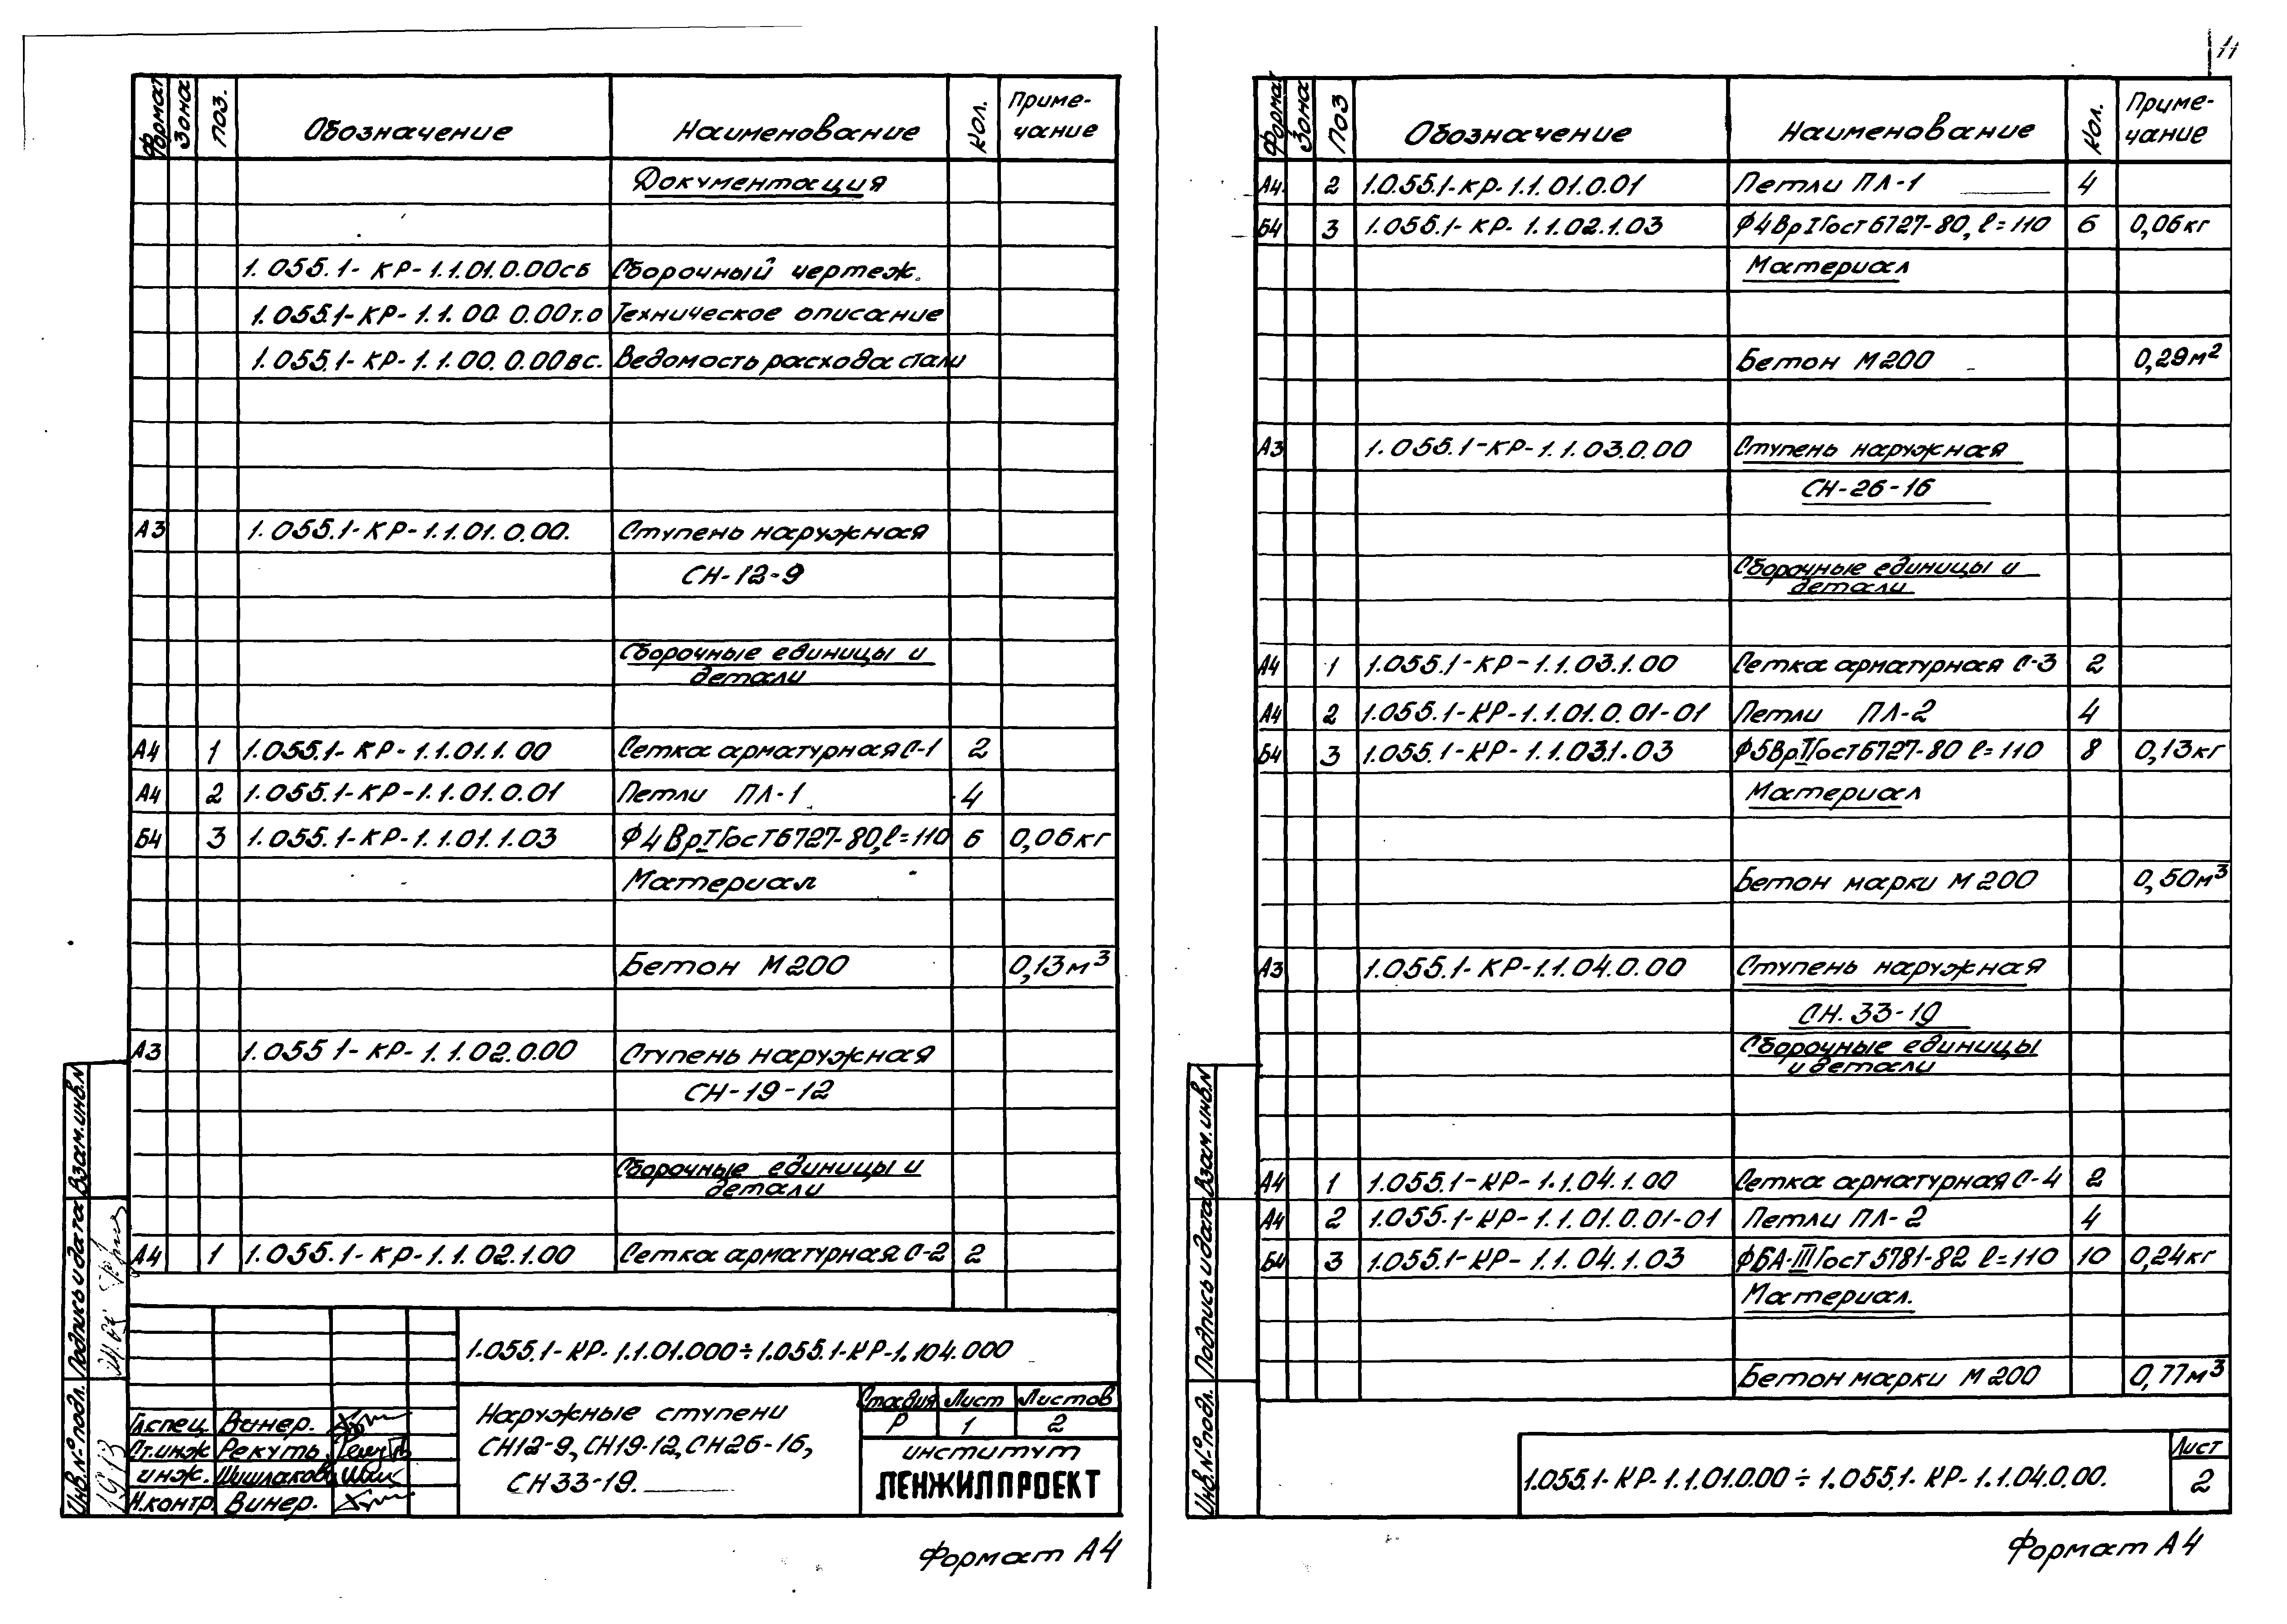 Формат Зона Поз. Обозначение Наименование Кол. Приме-
чание
Документация
1.055.1-КР-1.1.01.0.00сб Сборочный чертеж.
1.055.1-КР-1.1.00.0.00т.о Техническое описание
1.055.1-КР-1.1.00.0.00вс. Ведомость расхода стали
А3 1.055.1-КР-1.1.01.0.00. Ступень наружная
СН-12-9
Сборочные единицы и
детали
А4 1 1.055.1-КР-1.1.01.1.00 Сетка арматурная С-1 2
А4 2 1.055.1-КР-1.1.01.0.01 Петли ПЛ-1 4
Б4 3 1.055.1-КР-1.1.01.1.03 Ф4ВрI Гост 6727-80, l=110 6 0,06кг
Материал
Бетон М200 0,13м³
А3 1.055 1-КР-1.1.02.0.00 Ступень наружная
СН-19-12
Сборочные единицы и
детали
А4 1 1.055.1-КР-1.1.02.1.00 Сетка арматурная С-2 2
1.055.1-КР-1.1.01.000÷1.055.1-КР-1.104.000
Наружные ступени
СН12-9, СН19-12, СН26-16,
СН33-19.
Стадия Лист Листов
Р 1 2
институт
ЛЕНЖИЛПРОЕКТ
Гл.спец. Винер.
Ст.инж Рекуть
инж. Шишлаков
Н.контр. Винер.
Инв.№ подл. Подпись и дата Взам.инв.№
Формат А4
11
Формат Зона Поз Обозначение Наименование Кол. Приме-
чание
А4. 2 1.055.1-КР-1.1.01.0.01 Петли ПЛ-1 4
Б4 3 1.055.1-КР-1.1.02.1.03 Ф4ВрI Гост 6727-80, l=110 6 0,06кг
Материал
Бетон М200 0,29м²
А3 1.055.1-КР-1.1.03.0.00 Ступень наружная
СН-26-16
Сборочные единицы и
детали
А4 1 1.055.1-КР-1.1.03.1.00 Сетка арматурная С-3 2
А4 2 1.055.1-КР-1.1.01.0.01-01 Петли ПЛ-2 4
Б4 3 1.055.1-КР-1.1.03.1.03 Ф5ВрI Гост 6727-80 l=110 8 0,13кг
Материал
Бетон марки М200 0,50м³
А3 1.055.1-КР-1.1.04.0.00 Ступень наружная
СН.33-19
Сборочные единицы
и детали
А4 1 1.055.1-КР-1.1.04.1.00 Сетка арматурная С-4 2
А4 2 1.055.1-КР-1.1.01.0.01-01 Петли ПЛ-2 4
Б4 3 1.055.1-КР-1.1.04.1.03 Ф6А-III Гост 5781-82 l=110 10 0,24кг
Материал.
Бетон марки М200 0,77м³
1.055.1-КР-1.1.01.0.00÷1.055.1-КР-1.1.04.0.00.
Лист
2
Инв.№ подл. Подпись и дата Взам.инв.№
Формат А4